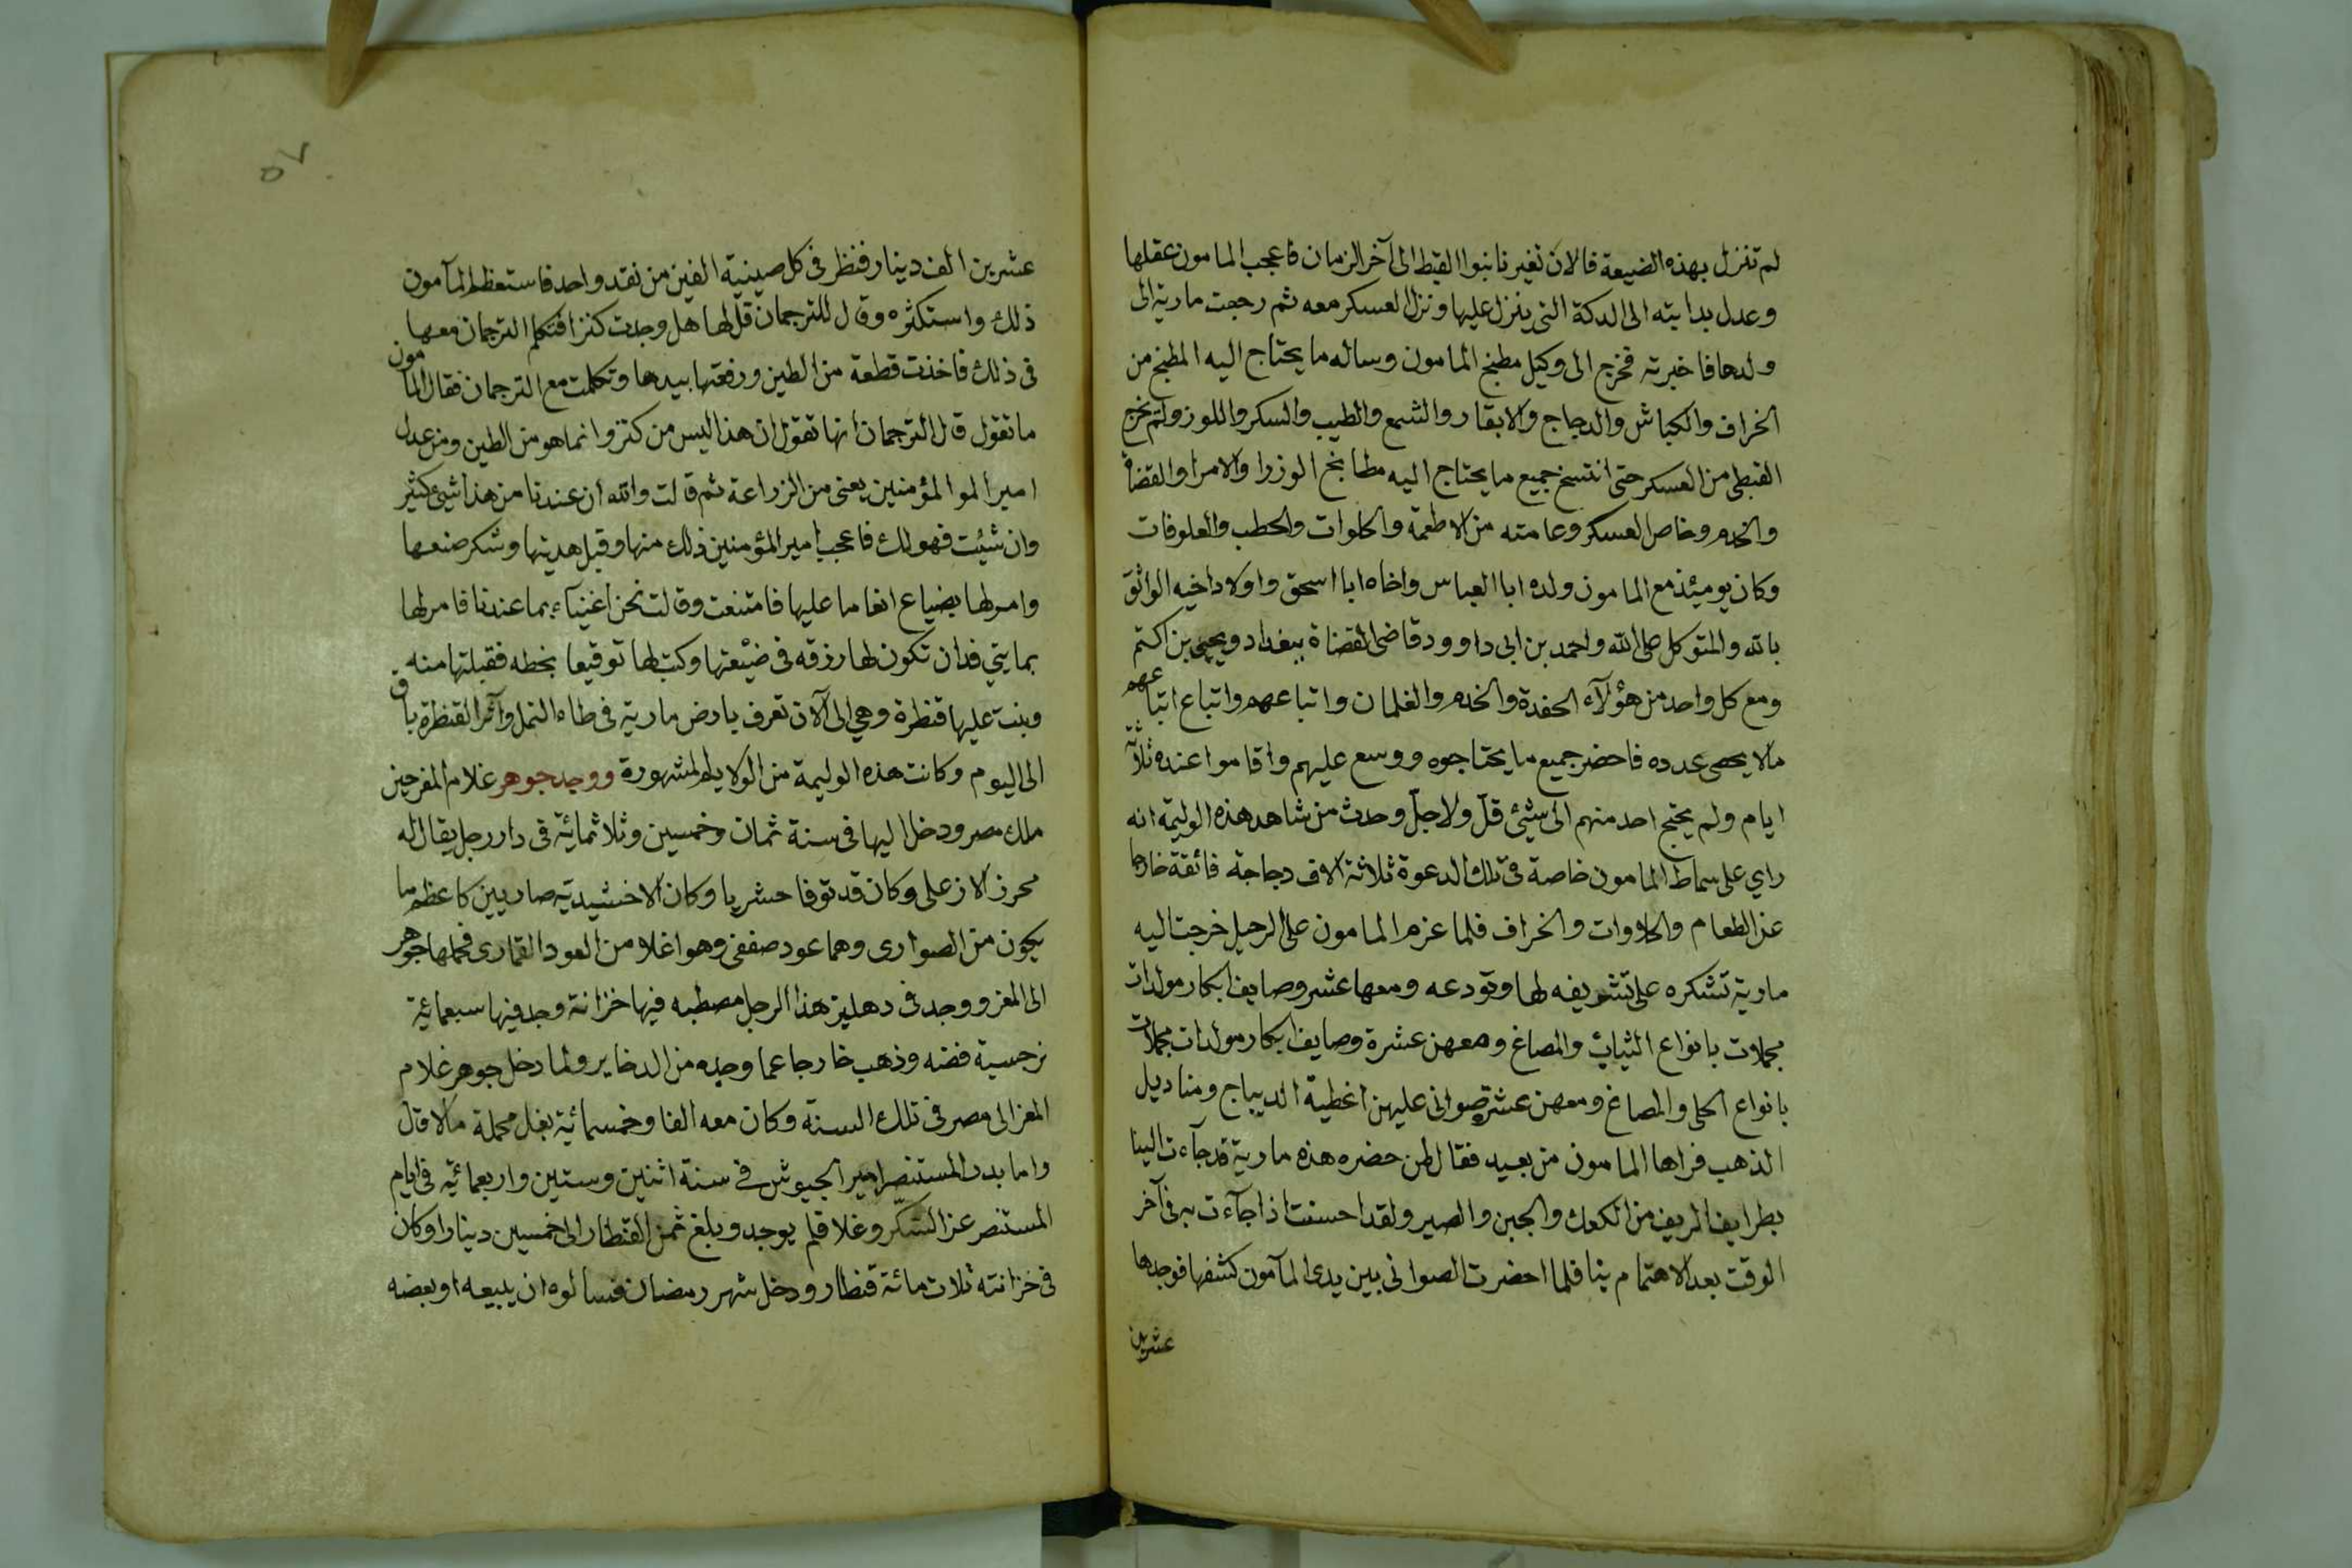 لم تنزل بهذه الضيعة فالان تغيرنا بنوا القبط الى آخر الزمان فاعجب المامون عقلها
وعدل بدابته الى الدكة التى ينزل عليها ونزل العسكر معه ثم رجعت مارية الى
ولدها فاخبرته فخرج الى وكيل مطبخ المامون وساله ما يحتاج اليه المطبخ من
الخراف والكباش والدجاج والابقار والشمع والطيب والسكر واللوز ولم يخرج
القبطى من العسكر حتى انتسخ جميع ما يحتاج اليه مطابخ الوزرا والامرا والقضاة
والخدم وخاص العسكر وعامته من الاطعمة والحلوات والحطب والعلوفات
وكان يوميئذ مع المامون ولده ابا العباس واخاه ابا اسحق واولاد اخيه الواثق
بالله والمتوكل على الله واحمد بن ابى داوود قاضى القضاة ببغداد ويحيى بن اكتم
ومع كل واحد من هؤلآء الحفدة والخدم والغلمان واتباعهم واتباع اتباعهم
مالا يحصى عدده فاحضر جميع ما يحتاجوه ووسع عليهم واقاموا عنده ثلاثة
ايام ولم يحتج احد منهم الى شيئ قلّ ولا جلّ وحدث من شاهد هذه الوليمة انه
راي على سماط المامون خاصة فى تلك الدعوة ثلاثة الاف دجاجة فائقة خارجا
عن الطعام والحلاوات والخراف فلما عزم المامون على الرحيل خرجت اليه
مارية تشكره على تشريفه لها وتودعه ومعها عشر وصايف ابكار مولدات
مجملات بانواع الثياب والمصاغ ومعهن عشرة وصايف ابكار مولدات مجملات
بانواع الحلى والمصاغ ومعهن عشرة صوانى عليهن اغطية الديباج ومناديل
الذهب فراها المامون من بعيد فقال لمن حضره هذه مارية قد جآءت الينا
بطرايف الريف من الكعك والجبن والصير ولقد احسنت اذا جآءت به فى آخر
الوقت بعد الاهتمام بنا فلما احضرت الصوانى بين يدى المآمون كشفها فوجدها
عشرين
٥٧
عشرين الف دينار فنظر فى كل صينية الفين من نقد واحد فاستعظم المآمون
ذلك واستكثره وقال للترجمان قل لها هل وجدت كنزا فتكلم الترجمان معها
فى ذلك فاخذت قطعة من الطين ورفعتها بيدها وتكلمت مع الترجمان فقال المامون
ما تقول قال الترجمان انها تقول ان هذا ليس من كنز وانما هو من الطين ومن عدل
امير الموالمؤمنين يعنى من الزراعة ثم قالت والله ان عندنا من هذا شيئ كثير
وان شيئت فهو لك فاعجب امير المؤمنين ذلك منها وقبل هديتها وشكر صنعها
وامر لها بضياع انعاما عليها فامتنعت وقالت نحن اغنيآء بما عندنا فامر لها
بمايتي فدان تكون لها رزقه فى ضيعتها وكتب لها توقيعا بخطه فقبلتها منه
وبنت عليها قنطرة وهي الى الآن تعرف بارض مارية فى طاه النمل وآثر القنطرة باق
الى اليوم وكانت هذه الوليمة من الولايم المشهورة ووجد جوهر غلام المعز حين
ملك مصر ودخل اليها فى سنة ثمان وخمسين وثلاثمائة فى دار رجل يقال له
محرز الازعلى وكان قد توفا حشريا وكان الاخشيدية صاريين كاعظم ما
يكون من الصوارى وهما عود صففى وهو اغلا من العود القمارى فحملها جوهر
الى المعز ووجد فى دهليز هذا الرجل مصطبه فيها خزانة وجد فيها سبعمائة
نرجسية فضه وذهب خارجا عما وجده من الدخاير ولما دخل جوهر غلام
المعز الى مصر فى تلك السنة وكان معه الفا وخمسمائة بغل محملة مالا قال
واما بدر المستنصر امير الجيوش فى سنة اثنين وستين واربعمائة فى ايام
المستنصر عز السكر وغلا فلم يوجد وبلغ ثمن القنطار الى خمسين دينارا وكان
فى خزانته ثلاث مائة قنطار ودخل شهر رمضان فسالوه ان يبيعه او بعضه